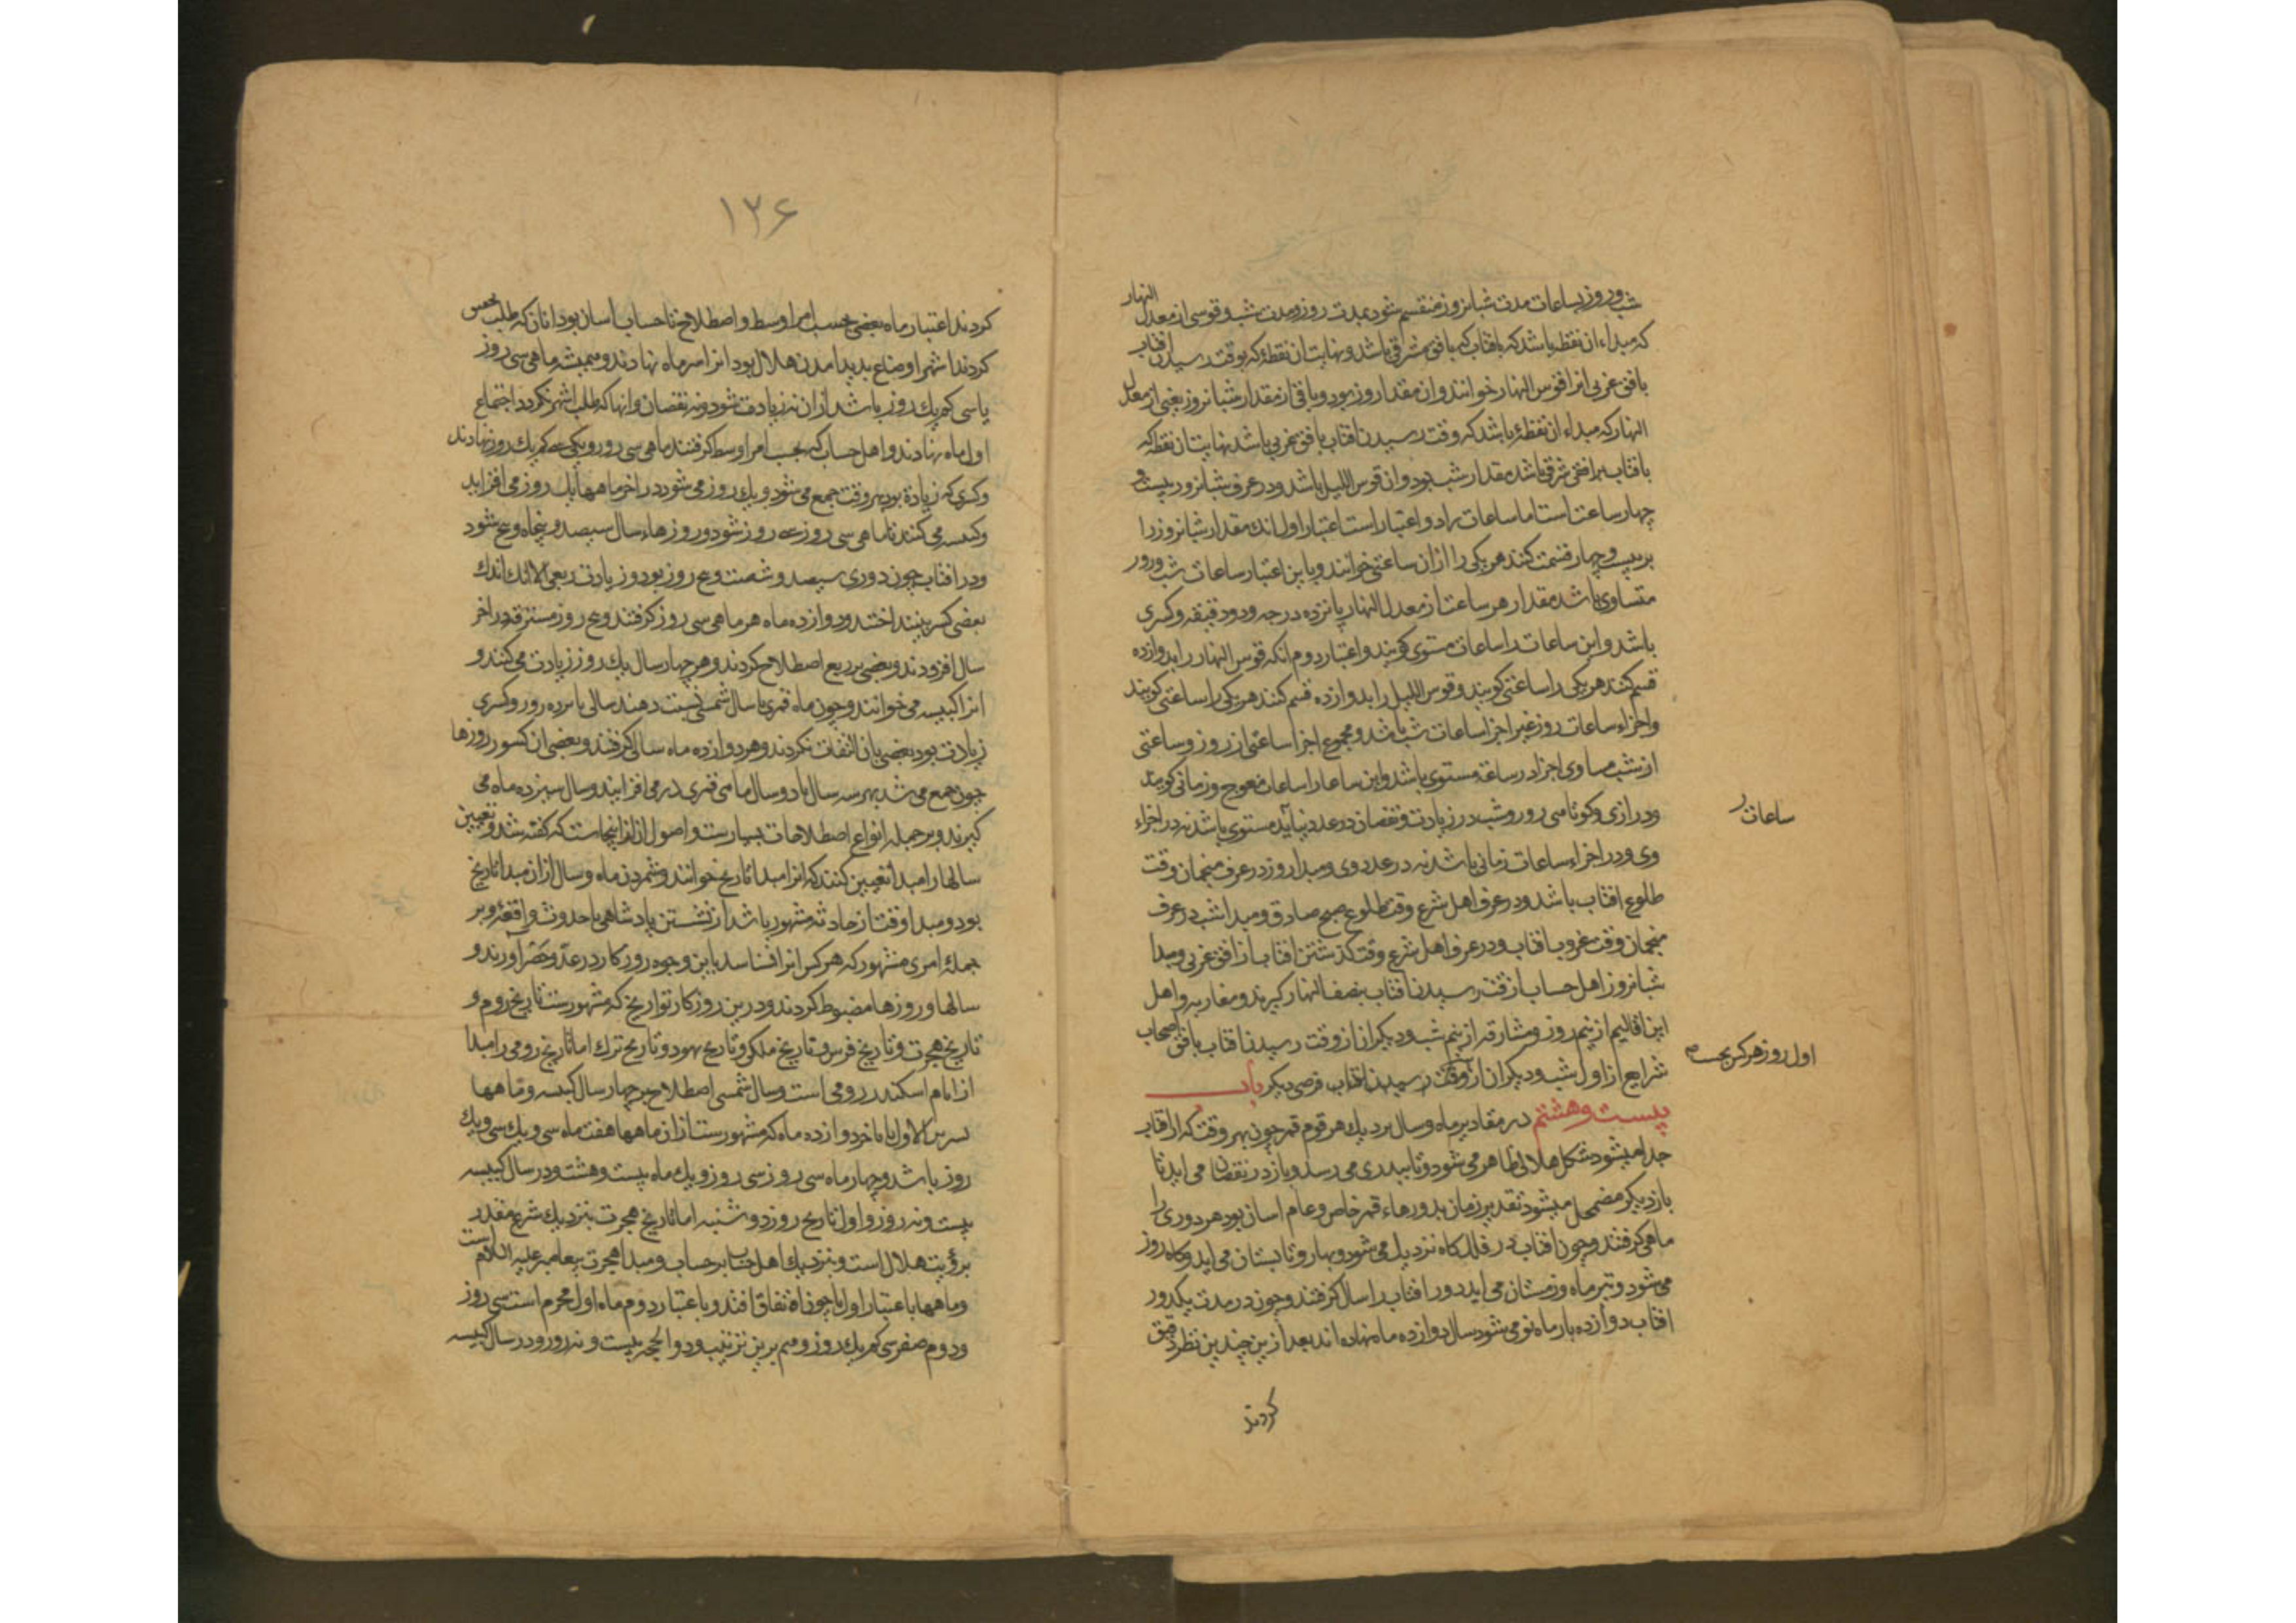 شب و روز بساعات مدت شبانروز منقسم شود بمدت روز و مدت شب و قوسی از معدل النهار
که مبداء ان نقطه باشد که با فتاب که بافق مشرقی باشد و نهایت ان نقطهٔ که بوقت رسیدن افتاب
بافق غربی انرا قوس النهار خوانند و ان مقدار روز بود و باقی از مقدار شبانروز یعنی از معدل
النهار که مبداء ان نقطهٔ باشد که وقت رسیدن افتاب بافق غربی باشد نهایتان نقطه که
با فتاب بر افق شرقی باشد مقدار شب بود و ان قوس اللیل باشد و در عرف شبانروز بیست و
چهار ساعت است اما ساعات را دو اعتبار است اعتبار اول انک مقدار شبانروز را
بربیست و چهار قسمت کنند هر یکی را ازان ساعتی خوانند و باین اعتبار ساعات شب و روز
متساوی باشد مقدار هر ساعت از معدل النهار پانزده درجه و دو دقیقه و کسری
باشد و این ساعات را ساعات مستوی کویند و اعتبار دوم انکه قوس النهار را بدوازده
قسم کنند هر یکی را ساعتی کویند و قوس اللیل را بدوازده قسم کنند هر یکی را ساعتی کویند
و اجزاء ساعات روز غیر اجزا ساعات شب باشد و مجموع اجزا ساعتی از روز و ساعتی
از شب مساوی اجزا در ساعة مستوی باشد و این ساعات را ساعات معوج و زمانی کویند
و درازی و کوتاهی روز و شب در زیادت و نقصان در عدد بیاید مستوی باشد نه در اجزاء
ساعات
وی و در اجزاء ساعات زمانی باشد نه در عدد وی و مبدا روز در عرف منجمان وقت
طلوع افتاب باشد و در عرف اهل شرع وقت طلوع صبح صادق و مبدا شب در عرف
منجمان وقت غروب افتاب و در عرف اهل شرع وقت کذشتن افتاب از افق غربی و مبدا
شبانروز اهل حساب از وقت رسیدن افتاب بنصف النهار کیرند و مغاربه و اهل
این اقالیم از نیم روز و مشارقه از نیم شب و دیکران از وقت رسیدن افتاب بافق اصحاب
اول روز هر کس بحسب
شرایع از اول شب و دیکران از وقت رسیدن افتاب فرضی دیکر باب
بیست و هشتم در مقادیر ماه و سال نزدیک هر قوم قمر چون بهر وقت که از افتاب
جدا میشود شکل هلالی ظاهر می شود و تا ببدری می رسد و باز در نقصان می اید تا
باز دیکر مضمحل میشود تقدیر زمان بدورهاء قمر خاص و عام اسان بود هر دوری را
ماهی کرفتند و چون افتاب در فلک کاه نزدیک می شود و بهار و تابستان می اید و کاه روز
می شود و تیر ماه و زمستان می اید دور افتاب را سال کرفتند و چون در مدت یکدور
افتاب دوازده بار ماه نو می شود سال دوازده ماه نهاده اند بعد ازین چندین نظر دقیق
کردند
۱۲۶
کردند اعتبار ماه بعضی بحسب امر اوسط و اصطلاح تا حساب اسان بود انان که طلب
کردند اشهر اوضاع بدید امدن هلال بود انرا سر ماه نهادند و همیشه ماهی سی روز
یا سی کم یک روز باشد ازان نه زیادت شود و نه نقصان و انها که طلب اشهر نکردند اجتماع
اول ماه نهادند و اهل حساب که بحسب امر اوسط کرفتند ماهی سی روز و یکی سی کم یک روز نهادند
و کسری که زیادة بود بهر وقت جمع می شود و یک روز می شود در اخر ماهها یک روز می افزاید
و کبیسه می کنند تا ماهی سی روز سی روز شود و روزهاء سال سیصد و پنجاه و پنج شود
و در افتاب چون دوری سیصد و شصت و پنج روز بود و زیادت ربعی الا اندک اندک
بعضی کسر بینداختند و دوازده ماه هر ماهی سی روز کرفتند و پنج روز مسترقه در اخر
سال افزودند و بعضی بر ربع اصطلاح کردند و هر چهار سال یک روز زیادت می کنند و
انرا کبیسه می خوانند و چون ماه قمری با سال شمسی نسبت دهند سالی یازده روز و کسری
زیادت بود بعضی بان التفات نکردند و هر دوازده ماه سالی کرفتند و بعضی ان کسور روزها
چون جمع می شد بهر سه سال یا دو سال ماهی قمری در می افزایند و سال سیزده ماه می
کیرند و بر جمله انواع اصطلاحات بسیارست و اصول ان از اینجاست که کفته شد و تعیین
سالها را مبدا تعیین کنند که انرا مبدا تاریخ خوانند و شمردن ماه و سال ازان مبدا تاریخ
بود و مبدا وقت از حادثه مشهور باشد از نشستن پادشاهی یا حدوث واقعهٔ و بر
جمله امری مشهور که هر کس انرا شناسد باین وجوه روزکار در عدّ و حصر اورند و
سالها و روزها مضبوط کردند و درین روزکار تواریخ که مشهورست تاریخ روم و
تاریخ هجرت و تاریخ فرس و تاریخ ملکی و تاریخ یهود و تاریخ ترک اما تاریخ رومی را مبدا
از ایام اسکندر رومی است و سال شمسی اصطلاح بر چهار سال کبیسه و ماهها
تشرین الاول تا باخر دوازده ماه که مشهورست ازان ماهها هفت ماه سی و یک سی و یک
روز باشد و چهار ماه سی روز سی روز و یک ماه بیست و هشت و در سال کبیسه
بیست و نه روز و اول تاریخ روز دوشنبه اما تاریخ هجرت بنزدیک شرع مقدر
برؤیت هلال است و بنزدیک اهل حساب بر حساب و مبدا هجرت پیغامبر علیه السلام است
و ماهها باعتبار اول تا چون اتفاق افتد و باعتبار دوم ماه اول محرم است سی روز
و دوم صفر سی کم یک روز و هم برین ترتیب و ذو الحجه بیست و نه روز و در سال کبیسه